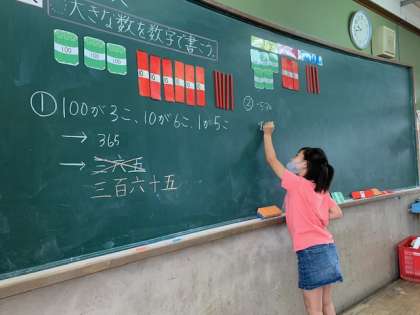 大きな数を数字で書こう。
100 100 100
① 100が3こ、10が6こ、1が5こ
→ 365
→ 三六五
三百六十五
②